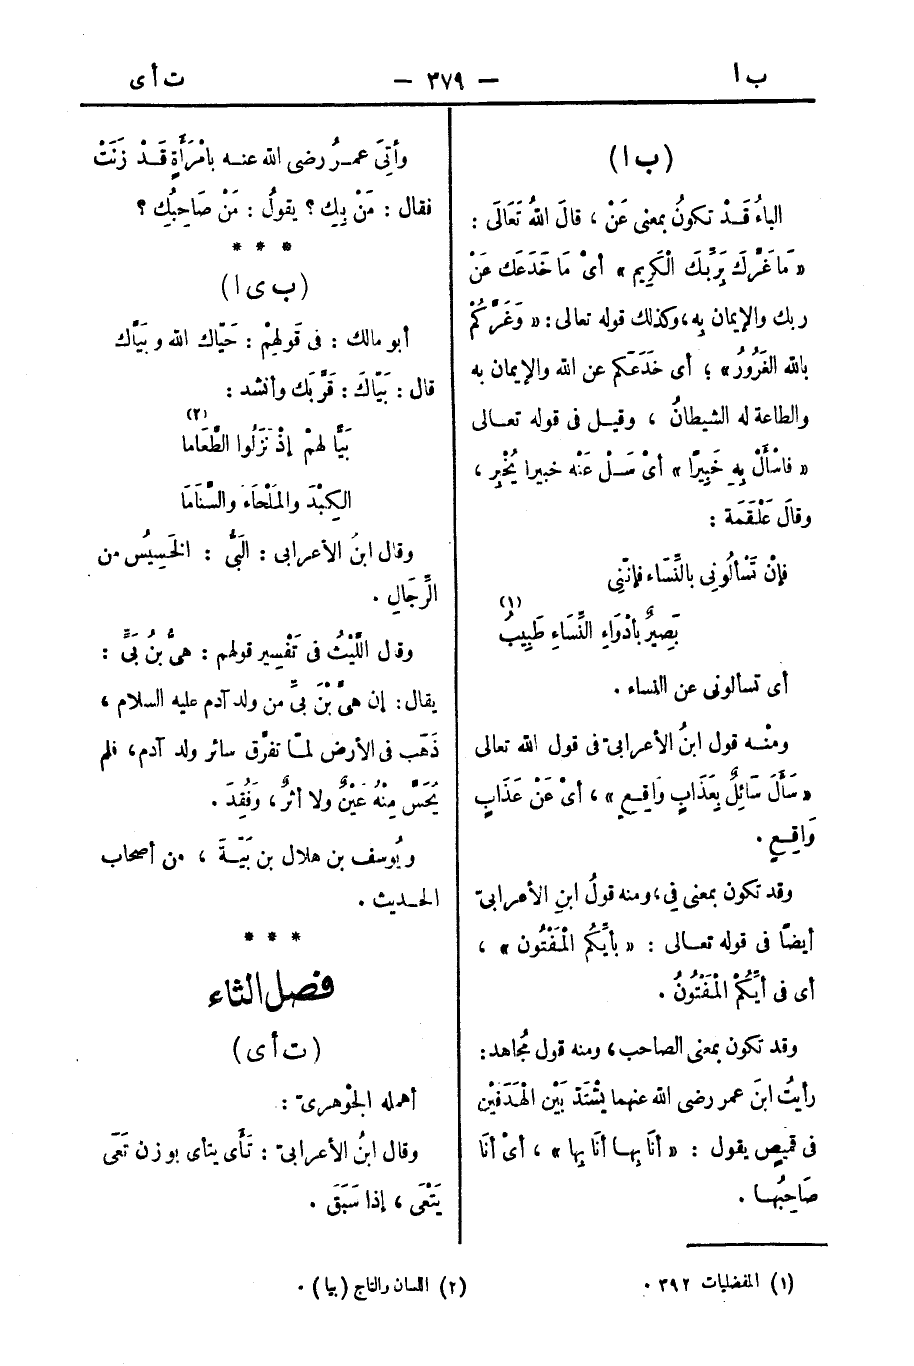 ب ا
— ٣٧٩ —
ت أ ى
( ب ا )
الباءُ قَـدْ تكونُ بمعنى عَنْ ، قالَ اللهُ تَعَالَى :
« مَا غَرَّكَ بِرَبِّكَ الْكَرِيمِ » أىْ مَا خَدَعَك عَنْ
ربك والإيمان بِه ، وكذلك قوله تعالى : « وَغَرَّكُمْ
بالله الغَرُورُ » ؛ أى خَدَعَكم عن الله والإيمان به
والطاعة له الشيطانُ ، وقيـل فى قوله تعـالى
« فاسْأَلْ بِهِ خَبِيرًا » أىْ سَـلْ عَنْه خبيرا يُخْبِر ،
وقالَ عَلْقَمَة :
فإنْ تَسْألُونِى بالنِّسَاء فإنّنِى
بَصِيرٌ بأدْوَاءِ النِّسَاءِ طَبِيبُ (١)
أى تسألونى عن النساء .
ومنْـه قول ابنُ الأعرابىّ فى قول الله تعالى
« سَأَلَ سَائِلٌ بِعَذَابٍ وَاقِـعٍ » ، أىْ عَنْ عَذَابٍ
وَاقِـعٍ .
وقد تكون بمعنى فى ، ومنه قولُ ابنِ الأعرابىّ
أيضًا فى قوله تعـالى : « بأيِّكُم المَفْتُون » ،
أى فى أيِّكُمْ المَفْتُونُ .
وقد تكون بمعنى الصاحب ، ومنه قول مُجاهد :
رأيتُ ابنَ عمر رضى الله عنهما يشْتَدّ بَيْنَ الْهَدَفَيْن
فى قميصٍ يقول : « أنَا بِهـا أنَا بِها » ، أىْ أنَا
صَاحِبُهـا .
وأُتِىَ عمـرُ رضى الله عنـه بامْرَأَةٍ قَـدْ زَنَتْ
فقال : مَنْ بِكِ ؟ يقولُ : مَنْ صَاحِبُكِ ؟
* * *
( ب ى ا )
أبو مالك : فى قَولهِمْ : حَيّاك الله وبَيَّاك
قال : بَيّاكَ : قَرَّبَك وأنشد :
بَيَّا لهمْ إذْ نَزَلُوا الطَّعَاما (٢)
الكِبْدَ والمَلْحَاءَ والسَّنَامَا
وقال ابنُ الأعرابى : البَىُّ : الخَسِيسُ من
الرِّجَالِ .
وقال اللَّيْثُ فى تَفْسِير قولهم : هىُّ بُن بَىٍّ :
يقال : إن هىَّ بْنَ بىٍّ من ولد آدم عليه السلام ،
ذَهَب فى الأرض لمّا تفرَّق سائر ولد آدم ، فلم
يُحَسَّ مِنْهُ عَيْنٌ ولا أثرٌ ، وَفُقِدَ .
ويُوسف بن هلال بن بَيَّـةَ ، من أصحاب
الحـديث .
* * *
فصل التاء
( ت أ ى )
أهمله الجوْهرىّ :
وقال ابنُ الأعرابىّ : تَأَى يتأى بوزن تَعَى
يَتْعَى ، إذا سَبَقَ .
(١) المفضليات ٣٩٢ .
(٢) اللسان والتاج (بيا) .